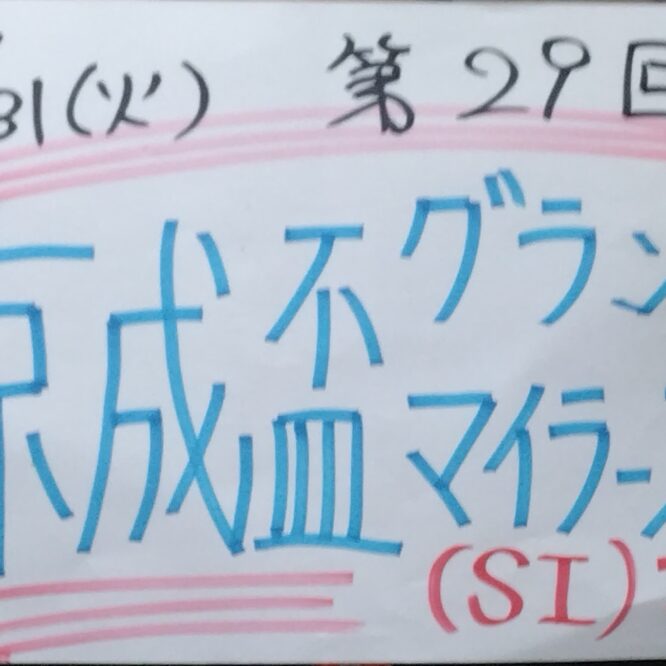 31(火) 第29回
京成盃グラン
マイラーズ
(SI)